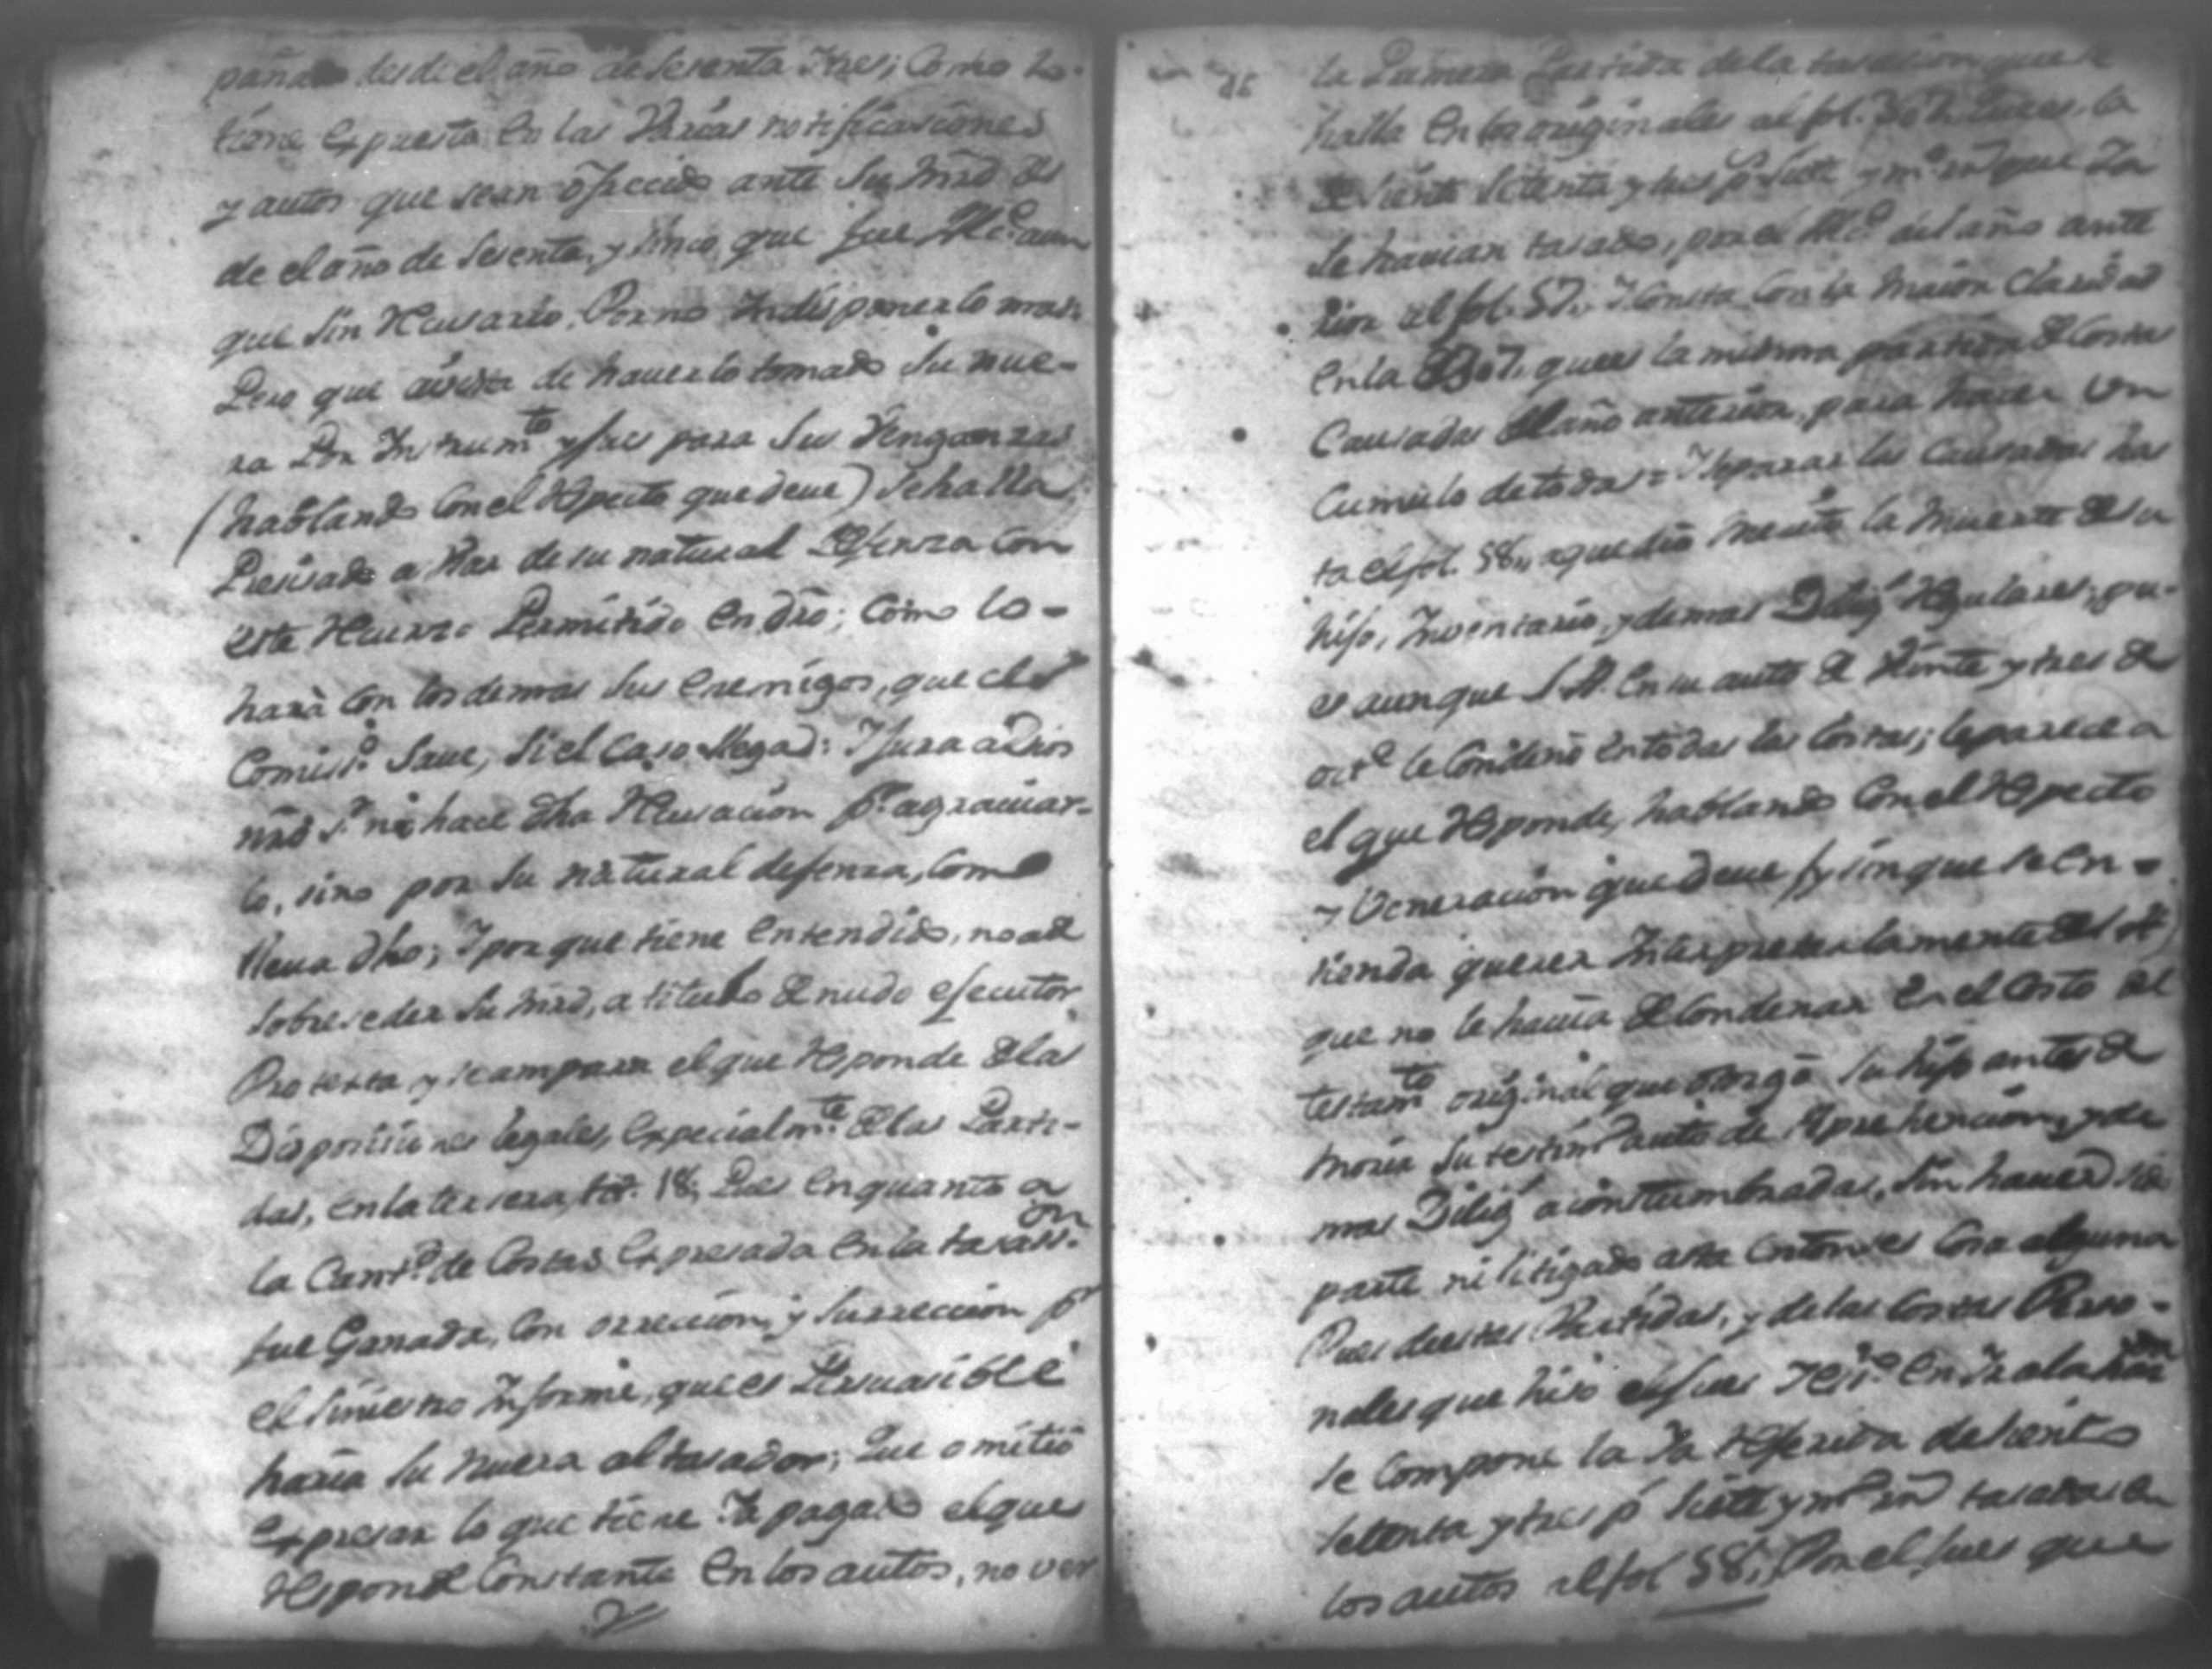 pañado desde el año de sesenta y tres; como lo
tiene expuesto en las varias notificasiones
y autos que sean ofrecido ante su mrd des
de el año de sesenta, y sinco, que fue Alc.e aun
que sin recusarlo, por no indisponerlo mas;
Pero que avista de haverlo tomado su nue-
ra por instrum.to y jues para sus venganzas
(hablando con el respecto que deve) se halla
Presisado a usar de su natural defenza con
este recurzo permitido en dro; como lo-
harà con los demas sus enemigos, que el
Comiss.o save, si el caso llega: Y jura a Dios
nro S.r no hace dha recusacion p.r agraviar-
lo, sino por su natural defenza, como
lleva dho; Y por que tiene entendido, no a de
sobreseder su mrd, a titulo de nudo executor
Protexta y se ampara el que responde de las
Disposisiones legales, expecialm.te de las Parti-
das, en la tersera, tit. 18; Pues en quanto a
la Cant.d de Costas expresada en la tasass.on
fue Ganada, con orrecion, y surrecion p.r
el siniestro informe, que es persuasible
haria su nuera al tasador; Que omitió
expresar lo que tiene Ya pagado el que
responde constante en los autos, no ver
la Primera Partida de la tasacion que se
halla en los originales al fol. 307. Pues la
de siento setenta y tres p.s siete y m.o r.s que Ya
se havian tasado, por el Alc.e del año ante
rior al fol. 57., Y consta con la maior claridad
en la 307. que es la misma partida de costas
Causadas el año anterior, para hacer un
Cumulo de todas = Y separar las causadas has
ta el fol. 58,, a que dio merito la muerte de su
hijo, Inventario, y demas Dilig.s regulares, pu-
es aunque S.A. en su auto de veinte y tres de
oct.e le condenó en todas las costas; le parece a
el que responde, hablando con el respecto
y veneracion que deve (y sin que se en-
tienda querer interpretar la mente de S.A.)
que no le havia de condenar en el costo del
testam.to original que otorgó su hijo antes de
morir su testim.o auto de aprehencion, y de
mas Dilig.s acostumbradas, sin haver sido
parte ni litigado asta entonses cosa alguna
Pues de estas Partidas, y de las costas Perso-
nales que hiso el jues
se compone la Ya referida de siento
setenta y tres p.s siete y m.o r.s tasadas en
los autos al fol 58., Por el jues que